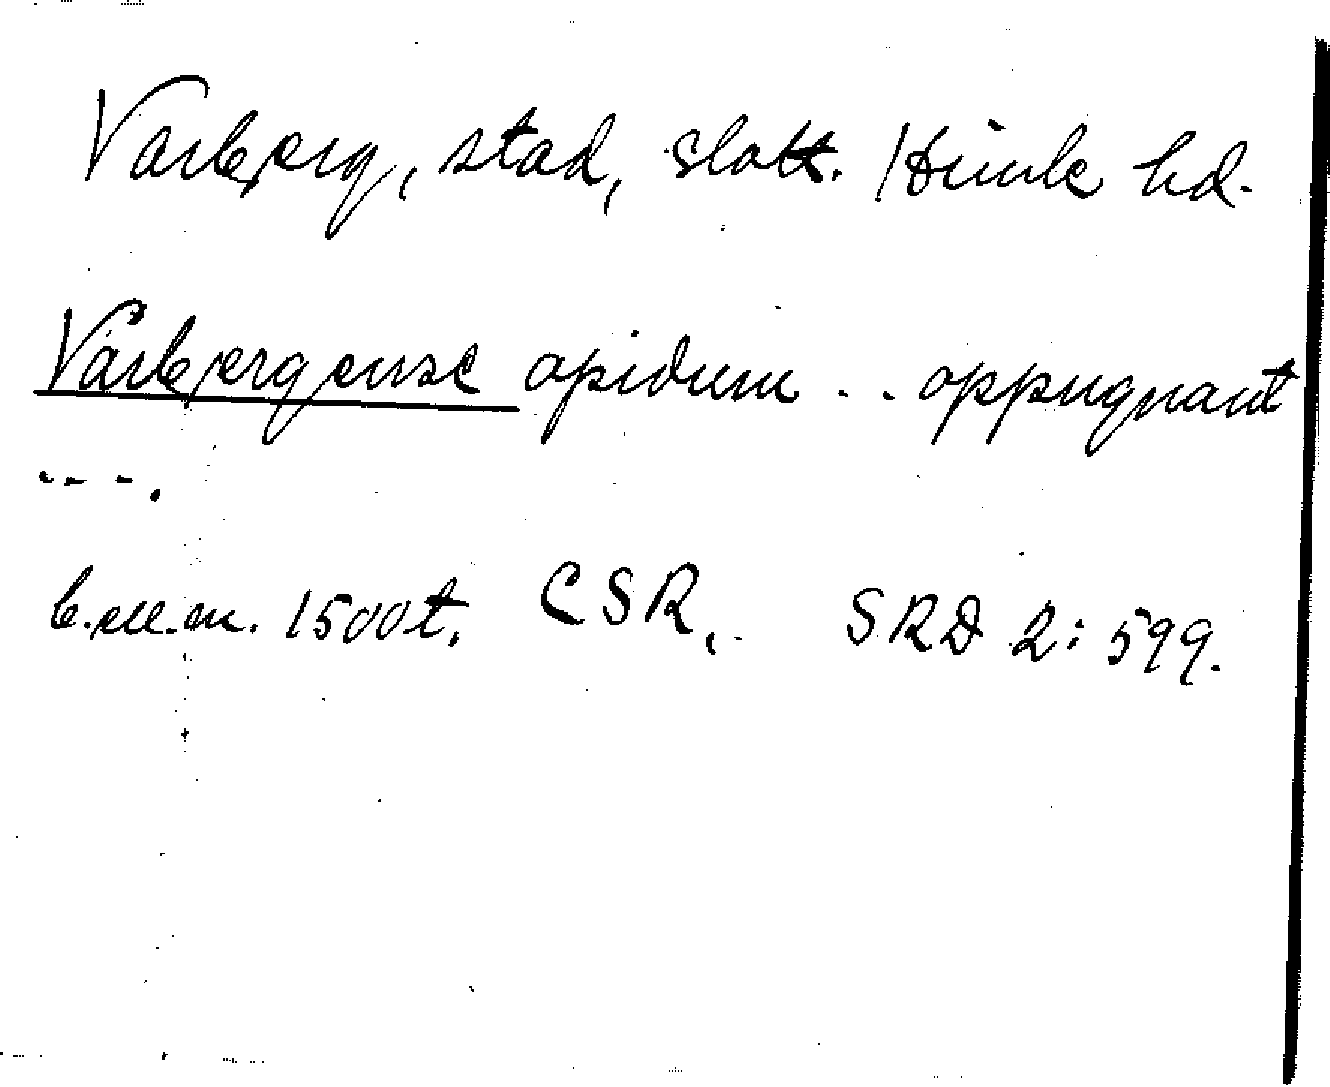 Varberg, stad, slott. Himle hd.
Varbergense opidum .. oppugnant
----.
b.ell.m. 1500t. CSR, SRD 2:599.